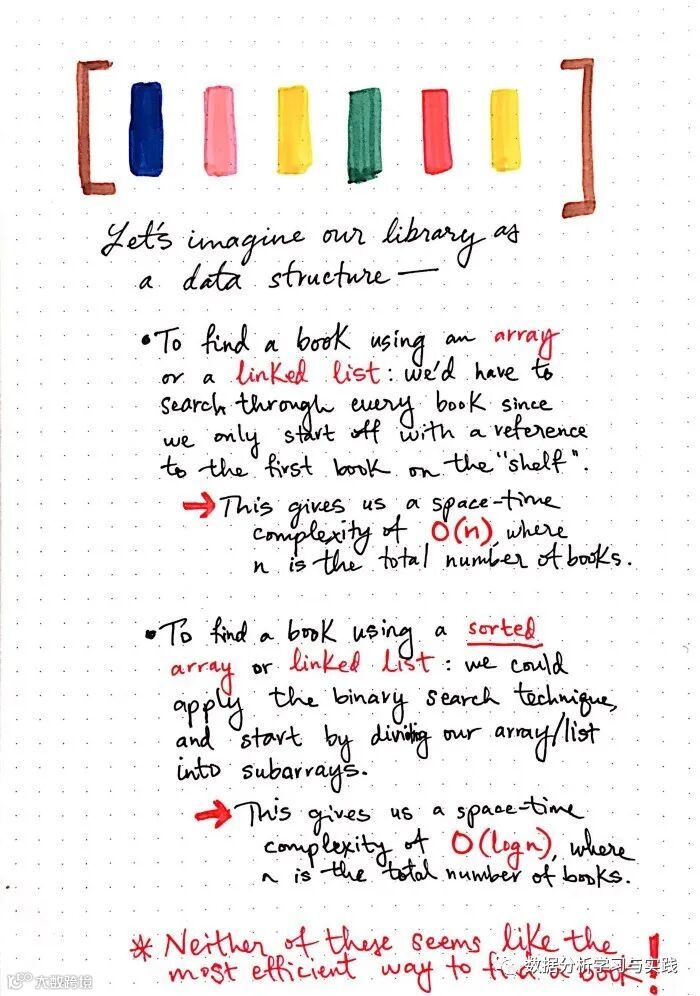 Let's imagine our library as
a data structure —
• To find a book using an array
or a linked list: we'd have to
search through every book since
we only start off with a reference
to the first book on the "shelf".
→ This gives us a space-time
complexity of O(n), where
n is the total number of books.
• To find a book using a sorted
array or linked list: we could
apply the binary search technique,
and start by dividing our array/list
into subarrays.
→ This gives us a space-time
complexity of O(log n), where
n is the total number of books.
* Neither of these seems like the
most efficient way to find a book!
数据分析学习与实践
大数跨境